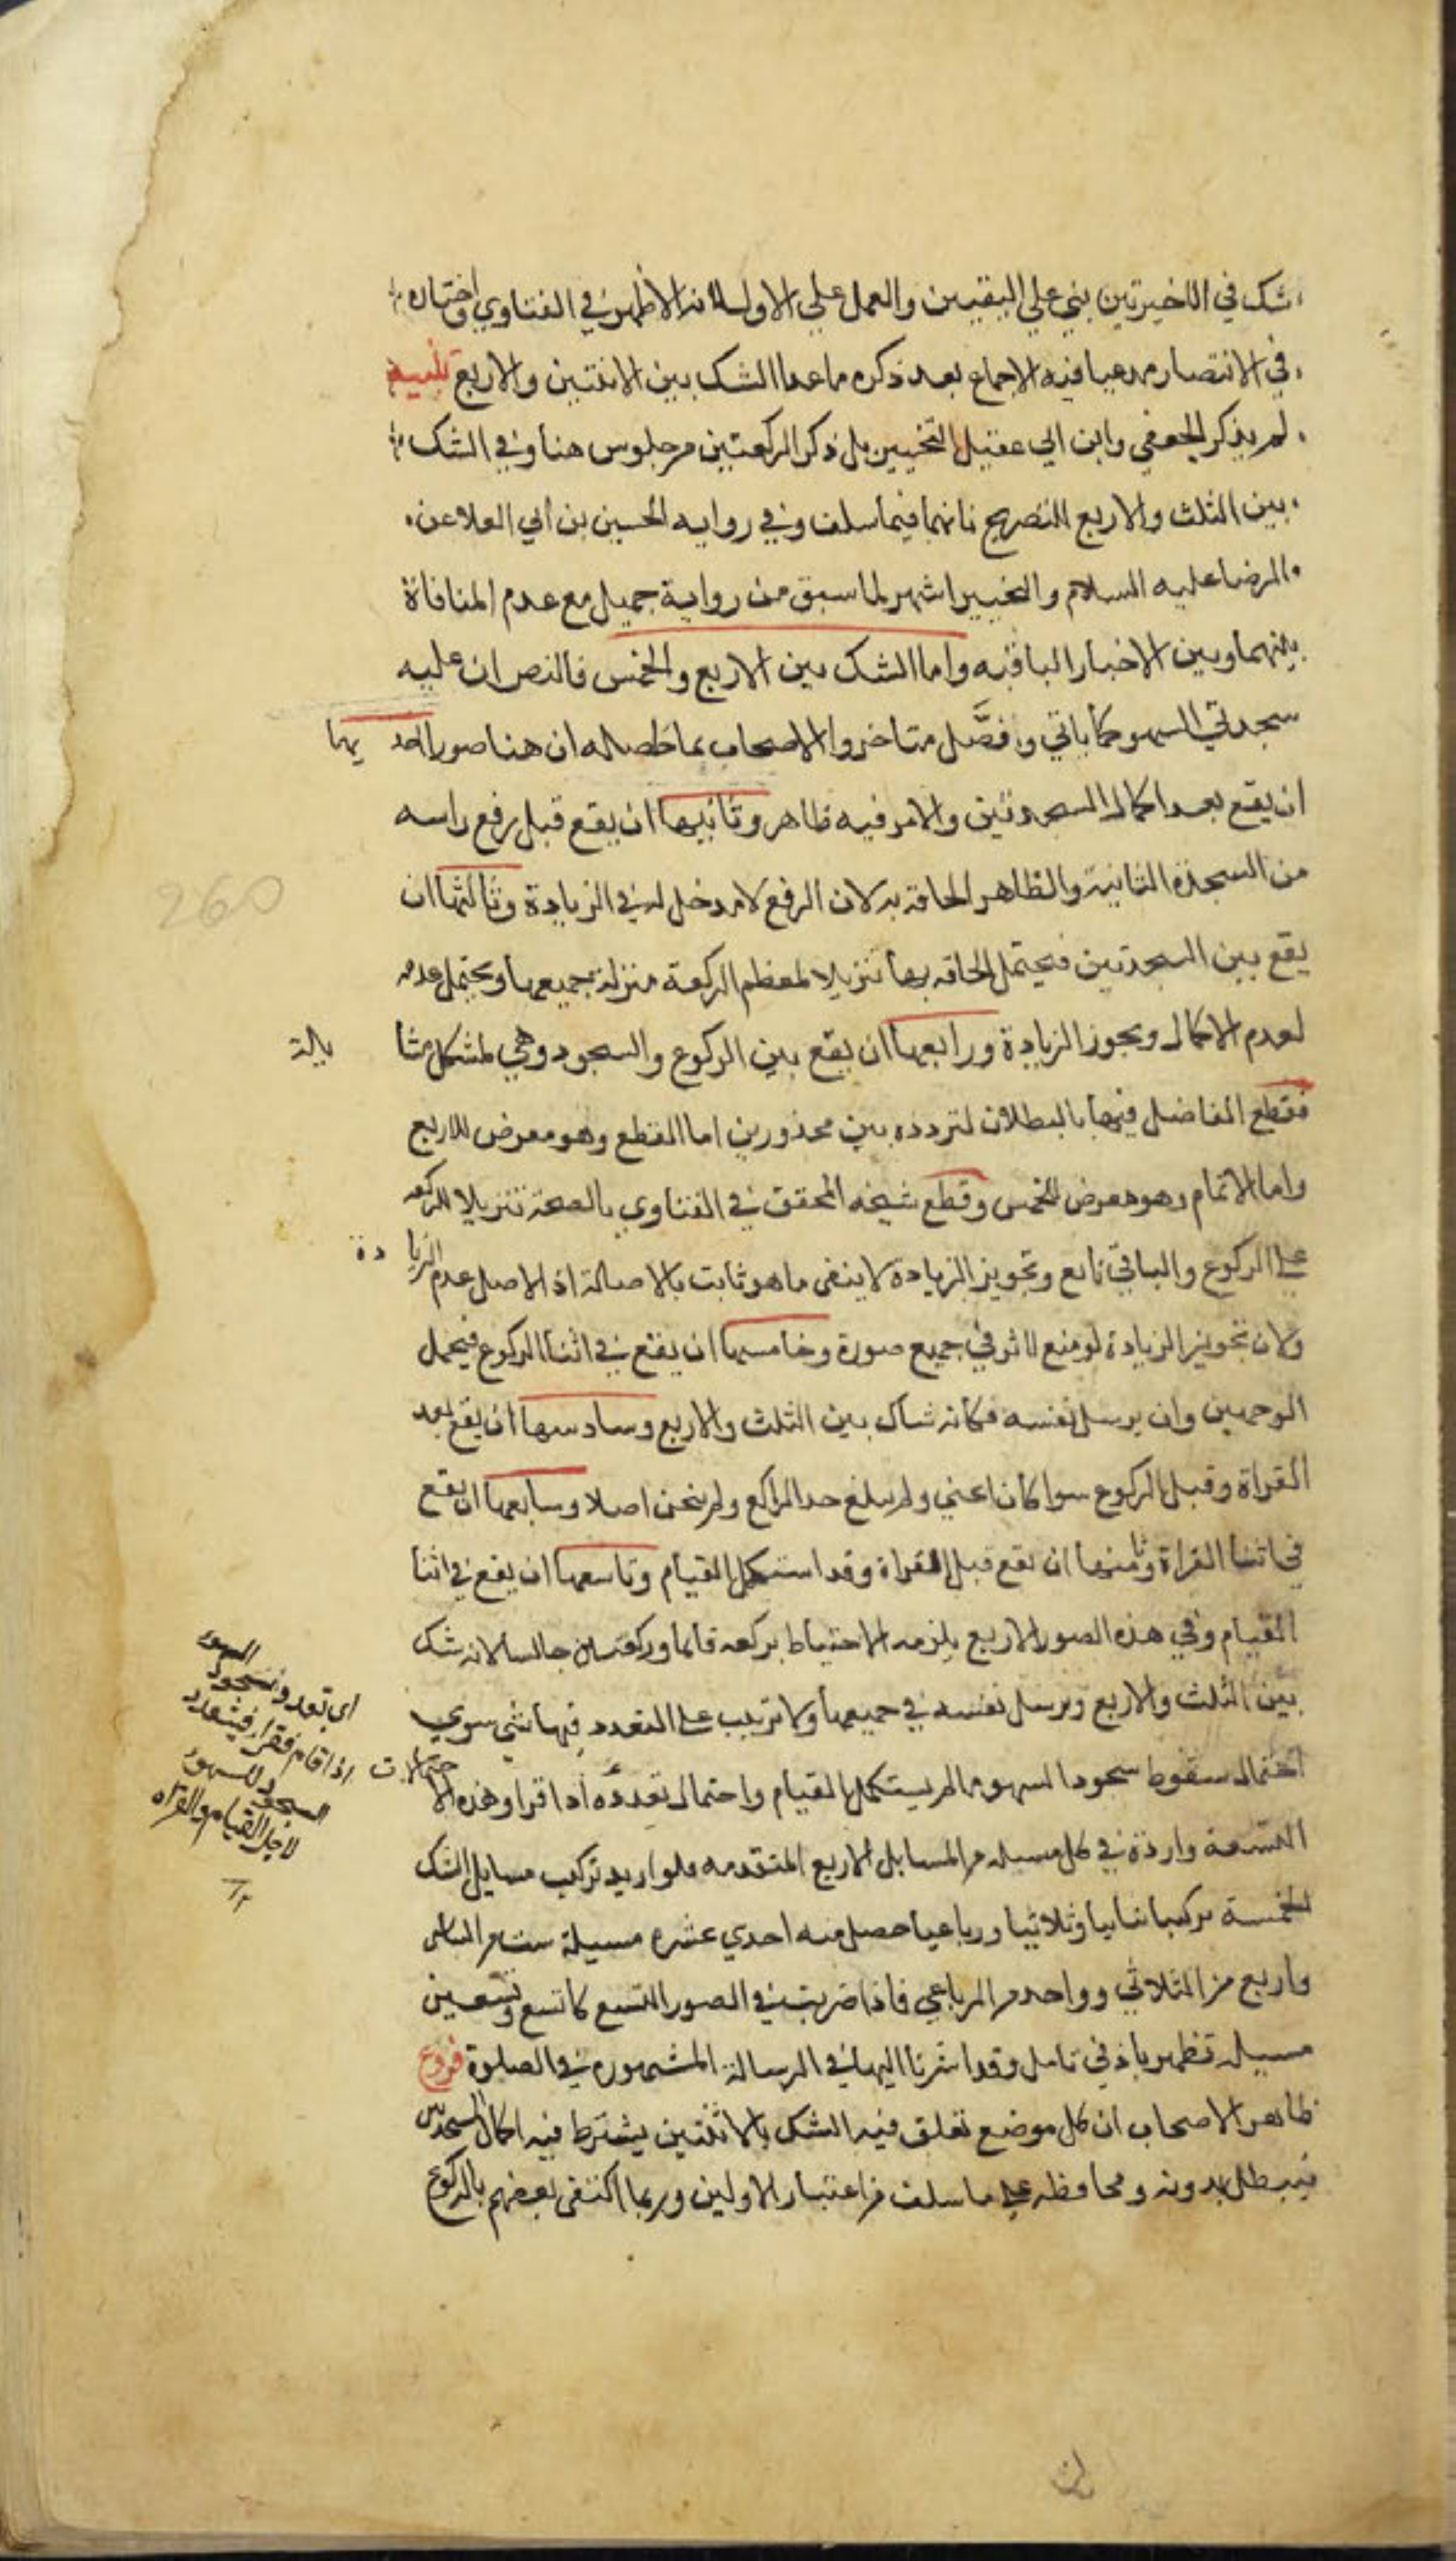 شك في الاخيرتين بني علي اليقين والعمل علي الاول لانه الاظهر في الفتاوي واختاره
في الانتصار مدعيا فيه الاجماع بعد ذكره ما عدا الشك بين الاثنتين والاربع تنبيه
لم يذكر الجعفي وابن ابي عقيل التخيير بل ذكرا الركعتين من جلوس هنا وفي الشك
بين الثلث والاربع للتصريح بانهما فيما سلف وفي رواية الحسين بن أبي العلا عن
الرضا عليه السلام والتخيير اشهر لما سبق من رواية جميل مع عدم المنافاة
بينهما وبين الاخبار الباقيه واما الشك بين الاربع والخمس فالنص ان عليه
سجدتي السهو كما ياتي وفصَّل متاخروا الاصحاب بما حصله ان هنا صورا احد يها
ان يقع بعد اكمال السجدتين والامر فيه ظاهر وثانيها ان يقع قبل رفع راسه
من السجدة الثانية والظاهر الحاقه به لان الرفع لا مدخل له في الزيادة وثالثها ان
يقع بين السجدتين فيحتمل الحاقه بها تنزيلا لمعظم الركعة منزلة جميعها ويحتمل عدمه
لعدم الاكمال وتجوز الزيادة ورابعها ان يقع بين الركوع والسجود وهي مشكل مثا
فقطع الفاضل فيها بالبطلان لتردده بين محذورين اما القطع وهو معرض للاربع
واما الاتمام وهو معرض للخمس وقطع شيخه المحقق في الفتاوي بالصحة تنزيلا للركعه
علي الركوع والباقي تابع وتجويز الزيادة لا ينفى ما هو ثابت بالاصالة اذ الاصل عدم الزيا دة
ولان تجويز الزيادة لو منع لاثر في جميع صوره وخامسها ان يقع في اثنا الركوع فيحتمل
الوجهين وان يرسل نفسه فكانه شاك بين الثلث والاربع وسادسها ان يقع بعد
القراة وقبل الركوع سوا كان انحني ولم يبلغ حد الراكع ولم ينحن اصلا وسابعها ان يقع
في اثنا القراة وثامنها ان يقع قبل القراة وقد استكمل القيام وتاسعها ان يقع في اثنا
القيام وفي هذه الصور الاربع يلزمه الاحتياط بركعه قائما وركعتين جالسا لانه شك
بين الثلث والاربع ويرسل نفسه في جميعها ولا ترتيب علي التعدد فيها شي سوي
احتمال سقوط سجود السهو مما لم يستكمل القيام واحتمال تعدده اذا قرا وهذه الا
حتمالات
التسعة واردة في كل مسيله من المسايل الاربع المتقدمه فلو اريد تركيب مسايل الشك
الخمسة تركيبا ثنايا وثلاثيا ورباعيا حصل منه احدي عشره مسيلة ست من الثنائي
واربع من الثلاثي وواحد من الرباعي فاذا ضربت في الصور التسع كانت تسع وتسعين
مسيله تظهر باذني تامل وقد اشرنا اليها في الرسالة المشهوره في الصلوة فروع
ظاهر الاصحاب ان كل موضع تعلق فيه الشك بالاثنتين يشترط فيه اكمال السجدتين
فيبطل بدونه ومحافظه علي ما سلف من اعتبار الاولين وربما اكتفى بعضهم بالركوع
بالة
اي تعدد سجود السهو
اذا قام فقرا فيتعدد
السجود للسهو
لاجل القيام والقراه
260